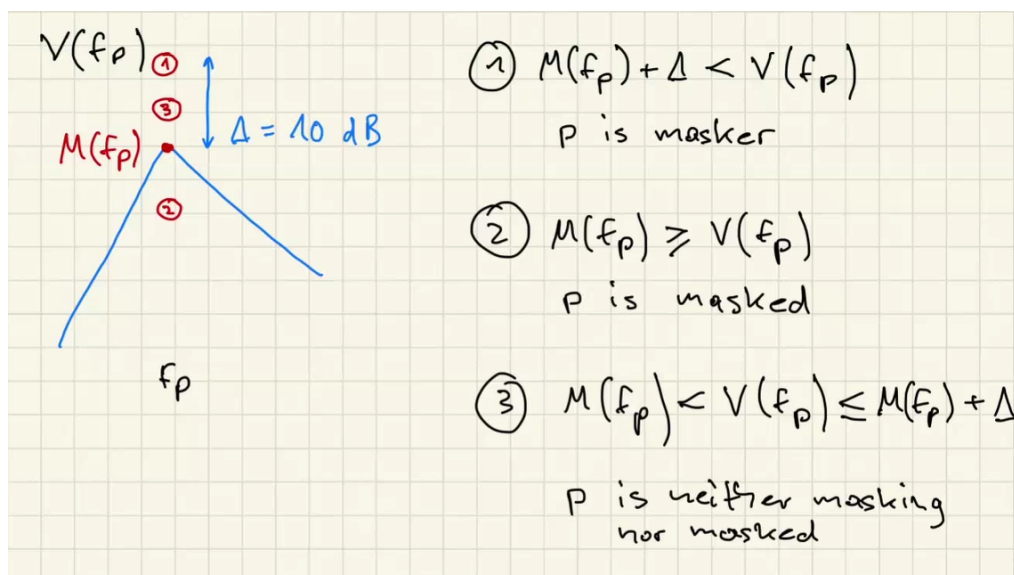 V(fₚ) ①
③
Δ = 10 dB
M(fₚ)
②
fₚ
① M(fₚ) + Δ < V(fₚ)
p is masker
② M(fₚ) ⩾ V(fₚ)
p is masked
③ M(fₚ) < V(fₚ) ≤ M(fₚ) + Δ
p is neither masking
nor masked